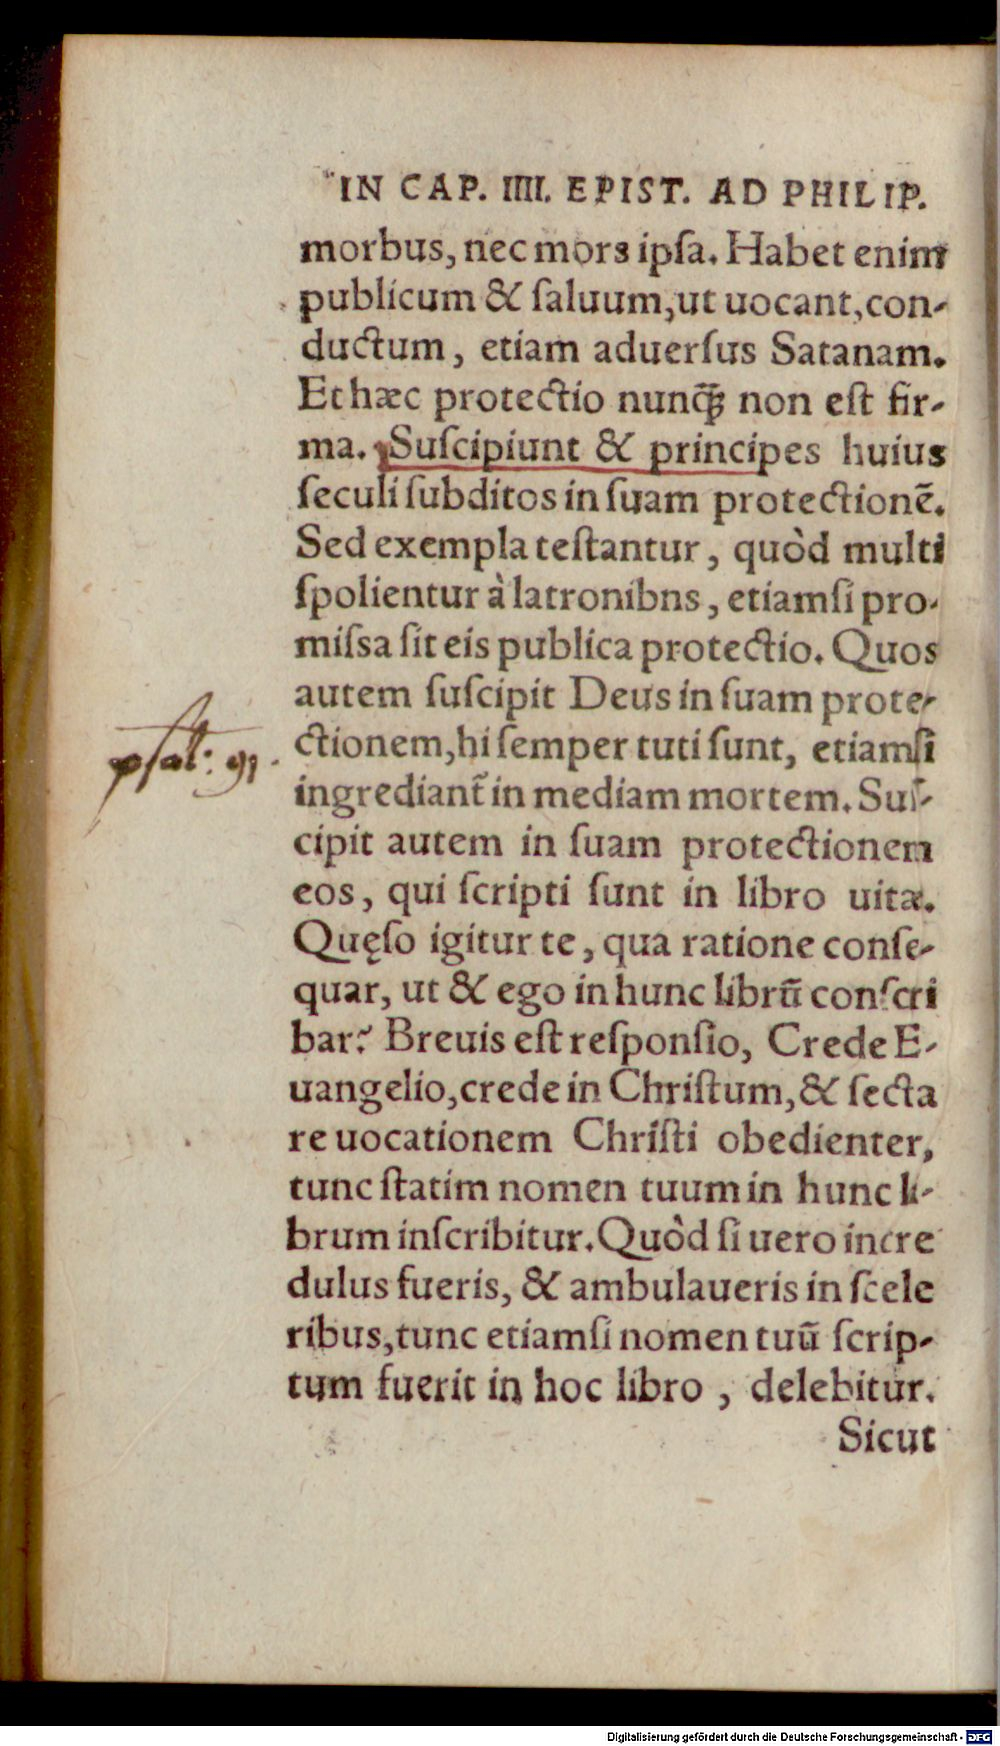 IN CAP. IIII. EPIST. AD PHILIP.
morbus, nec mors ipſa. Habet enim
publicum & ſaluum, ut uocant, con-
ductum, etiam aduerſus Satanam.
Et hæc protectio nunq̃ꝫ non eſt fir-
ma. Suſcipiunt & principes huius
ſeculi ſubditos in ſuam protectionē.
Sed exempla teſtantur, quòd multi
ſpolientur à latronibns, etiamſi pro-
miſſa ſit eis publica protectio. Quos
autem ſuſcipit Deus in ſuam prote-
ctionem, hi ſemper tuti ſunt, etiamſi
psal: 91.
ingrediant̃ in mediam mortem. Suſ-
cipit autem in ſuam protectionem
eos, qui ſcripti ſunt in libro uitæ.
Quęſo igitur te, qua ratione conſe-
quar, ut & ego in hunc librū conſcri
bar? Breuis eſt reſponſio, Crede E-
uangelio, crede in Chriſtum, & ſecta
re uocationem Chriſti obedienter,
tunc ſtatim nomen tuum in hunc li-
brum inſcribitur. Quòd ſi uero incre
dulus fueris, & ambulaueris in ſcele
ribus, tunc etiamſi nomen tuū ſcrip-
tum fuerit in hoc libro, delebitur.
Sicut
Digitalisierung gefördert durch die Deutsche Forschungsgemeinschaft - DFG